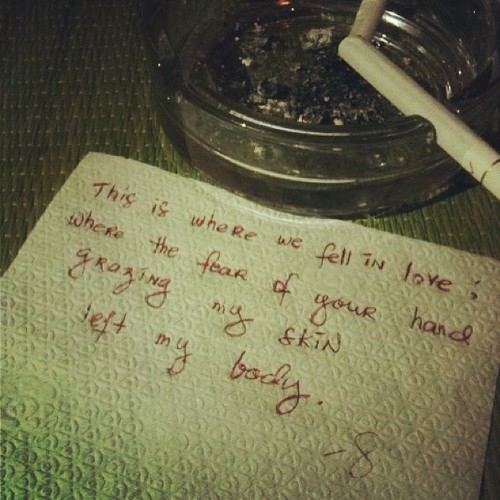 This is where we fell in love:
where the fear of your hand
grazing my skin
left my body.
-8